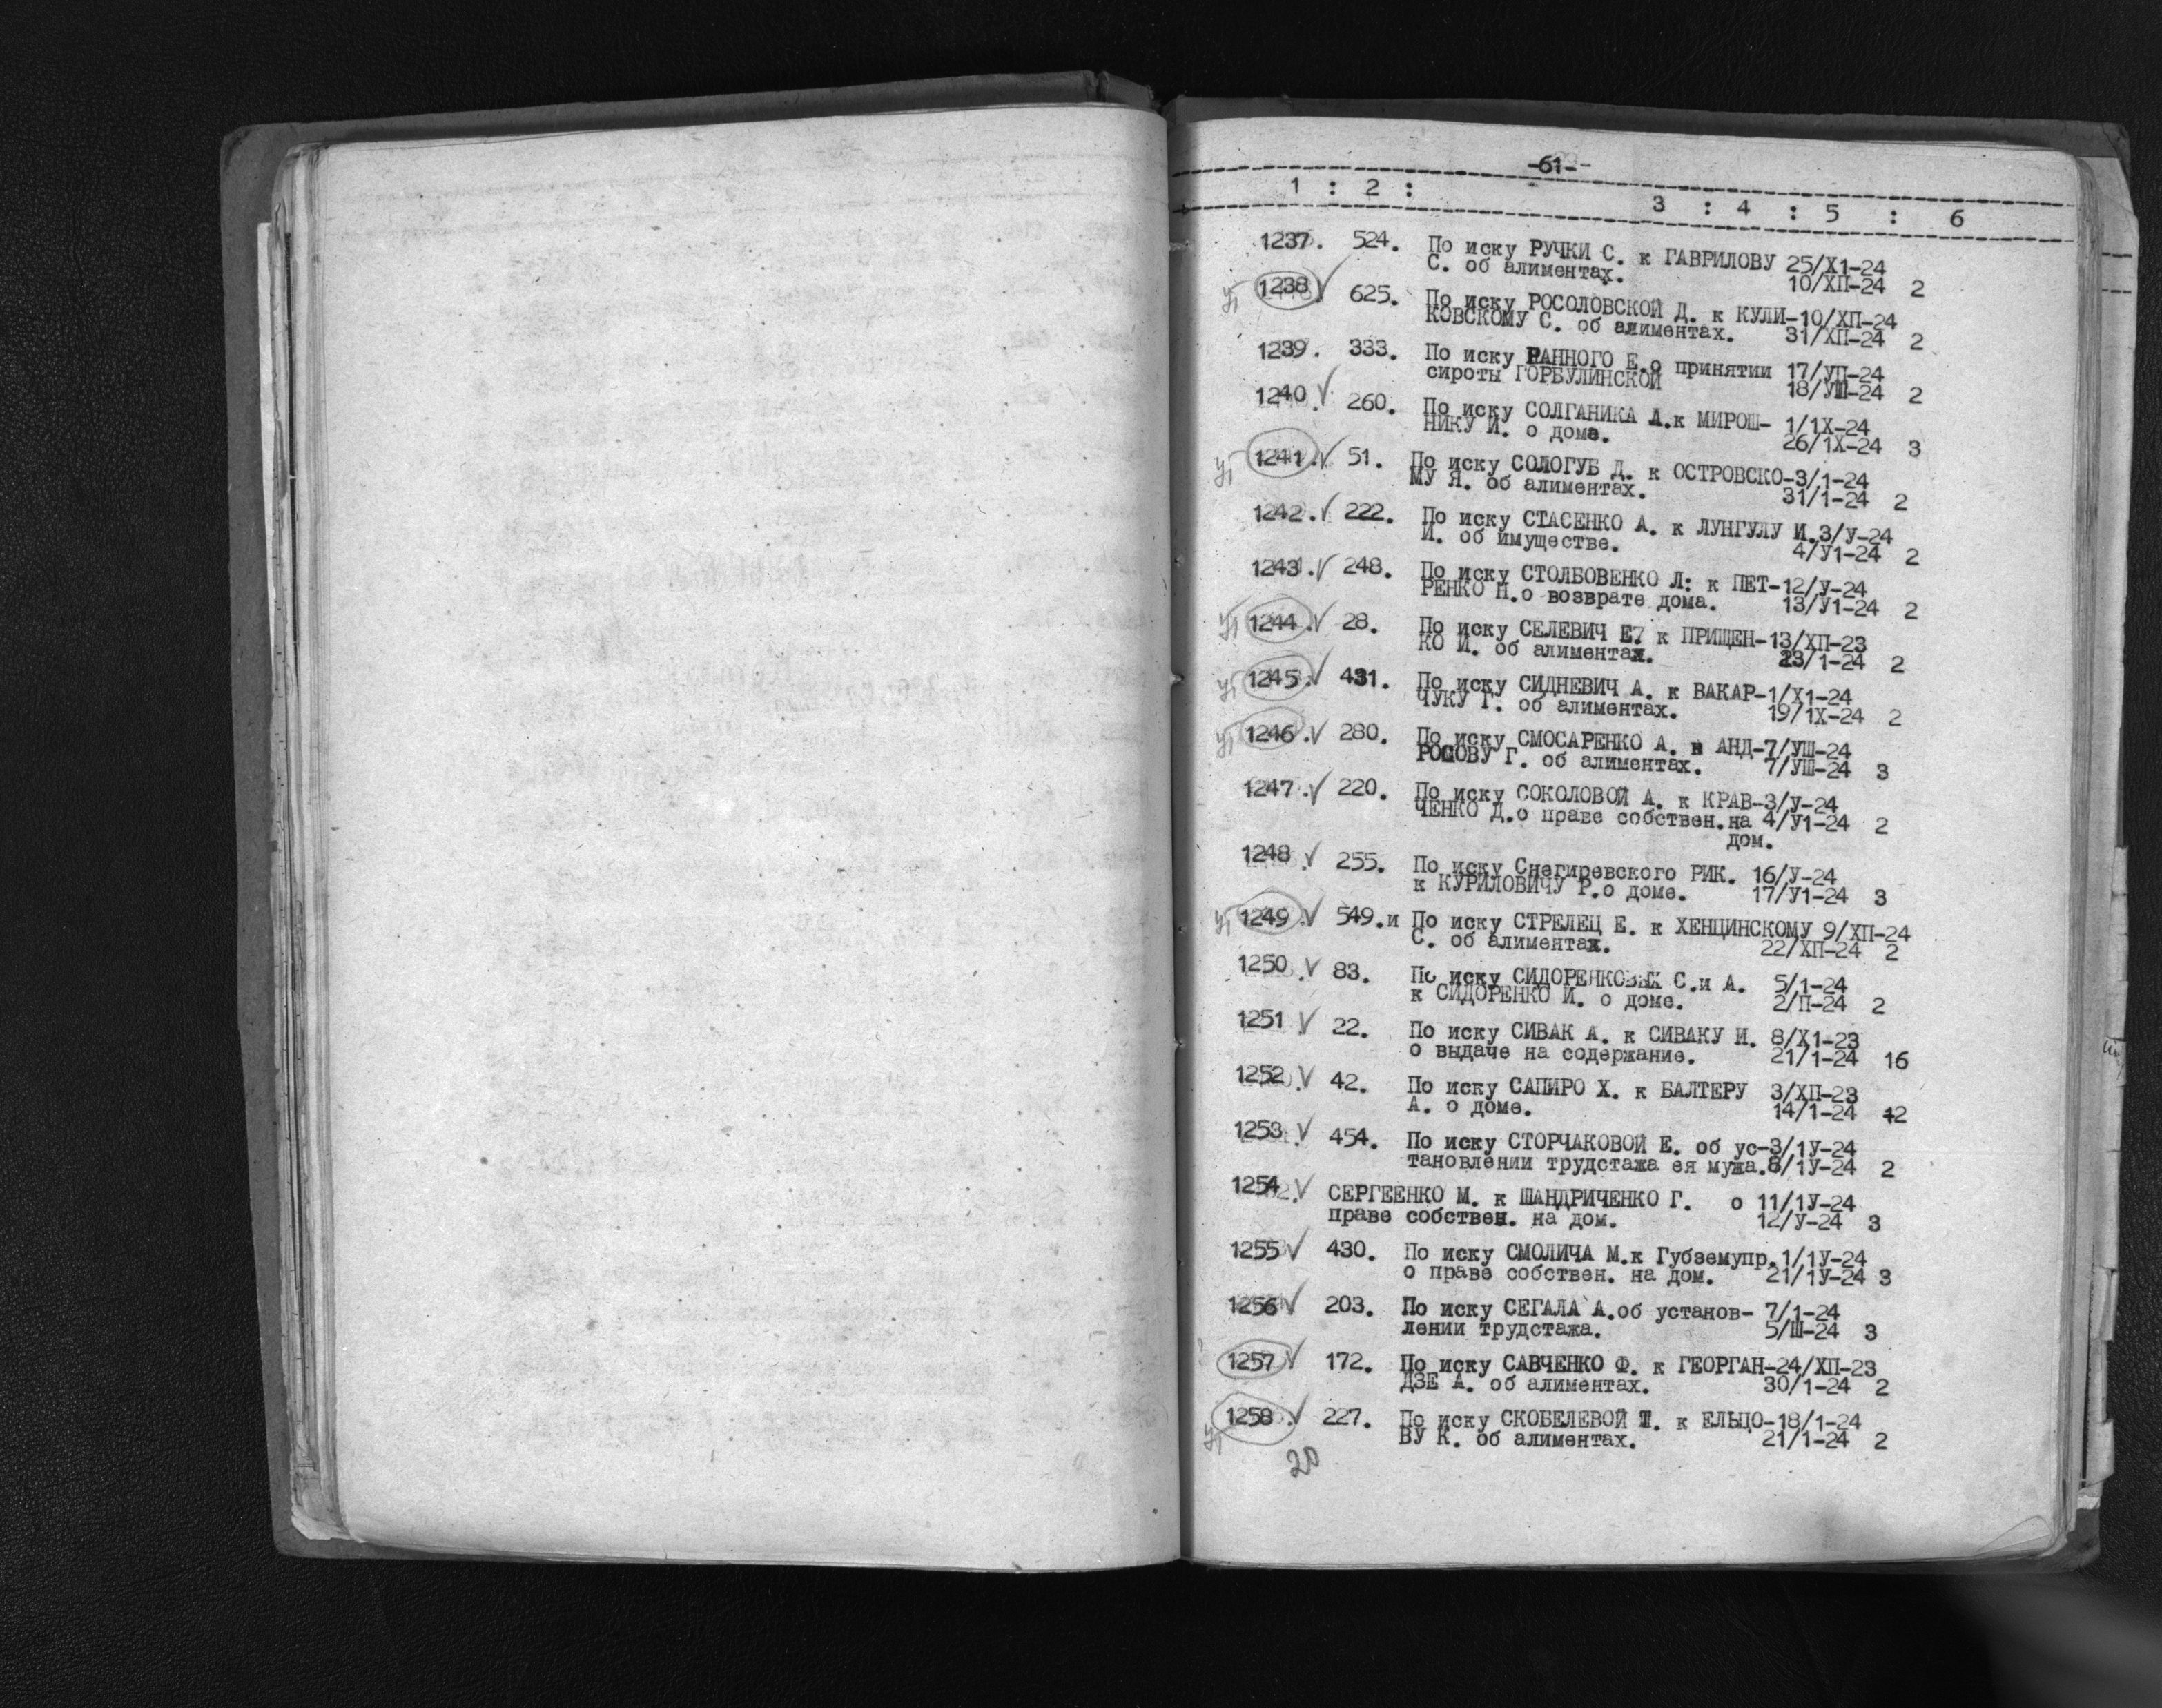 -61-
1 : 2 : 3 : 4 : 5 : 6
1237. 524. По иску РУЧКИ С. к ГАВРИЛОВУ 25/Х1-24
С. об алиментах. 10/ХП-24 2
1238 √ 625. По иску РОСОЛОВСКОЙ Д. к КУЛИ-10/ХП-24
КОВСКОМУ С. об алиментах. 31/ХП-24 2
1239. 333. По иску РАННОГО Е.о принятии 17/УП-24
сироты ГОРБУЛИНСКОЙ 18/УШ-24 2
1240 √ 260. По иску СОЛГАНИКА А.к МИРОШ- 1/1Х-24
НИКУ И. о доме. 26/1Х-24 3
1241.√ 51. По иску СОЛОГУБ Д. к ОСТРОВСКО-3/1-24
МУ Я. об алиментах. 31/1-24 2
1242.√ 222. По иску СТАСЕНКО А. к ЛУНГУЛУ И.3/У-24
И. об имуществе. 4/У1-24 2
1243.√ 248. По иску СТОЛБОВЕНКО Л: к ПЕТ-12/У-24
РЕНКО Н.о возврате дома. 13/У1-24 2
1244.√ 28. По иску СЕЛЕВИЧ Е. к ПРИЩЕН-13/ХП-23
КО И. об алиментах. 23/1-24 2
1245.√ 431. По иску СИДНЕВИЧ А. к ВАКАР-1/Х1-24
ЧУКУ Г. об алиментах. 19/1Х-24 2
1246.√ 280. По иску СМОСАРЕНКО А. к АНД-7/УШ-24
РОСОВУ Г. об алиментах. 7/УШ-24 3
1247.√ 220. По иску СОКОЛОВОЙ А. к КРАВ-3/У-24
ЧЕНКО Д.о праве собствен.на 4/У1-24 2
дом.
1248 √ 255. По иску Снегиревского РИК. 16/У-24
к КУРИЛОВИЧУ Р.о доме. 17/У1-24 3
1249.√ 549.и По иску СТРЕЛЕЦ Е. к ХЕНЦИНСКОМУ 9/ХП-24
С. об алиментах. 22/ХП-24 2
1250.√ 83. По иску СИДОРЕНКОВЫХ С.и А. 5/1-24
к СИДОРЕНКО И. о доме. 2/П-24 2
1251 √ 22. По иску СИВАК А. к СИВАКУ И. 8/Х1-23
о выдаче на содержание. 21/1-24 16
1252.√ 42. По иску САПИРО Х. к БАЛТЕРУ 3/ХП-23
А. о доме. 14/1-24 12
1253.√ 454. По иску СТОРЧАКОВОЙ Е. об ус-3/1У-24
тановлении трудстажа ея мужа.8/1У-24 2
1254.√ СЕРГЕЕНКО М. к ШАНДРИЧЕНКО Г. о 11/1У-24
праве собствен. на дом. 12/У-24 3
1255√ 430. По иску СМОЛИЧА М.к Губземупр.1/1У-24
о праве собствен. на дом. 21/1У-24 3
1256√ 203. По иску СЕГАЛА А.об установ- 7/1-24
лении трудстажа. 5/Ш-24 3
1257√ 172. По иску САВЧЕНКО Ф. к ГЕОРГАН-24/ХП-23
ДЗЕ А. об алиментах. 30/1-24 2
1258.√ 227. По иску СКОБЕЛЕВОЙ Т. к ЕЛЬЦО-18/1-24
ВУ К. об алиментах. 21/1-24 2
20